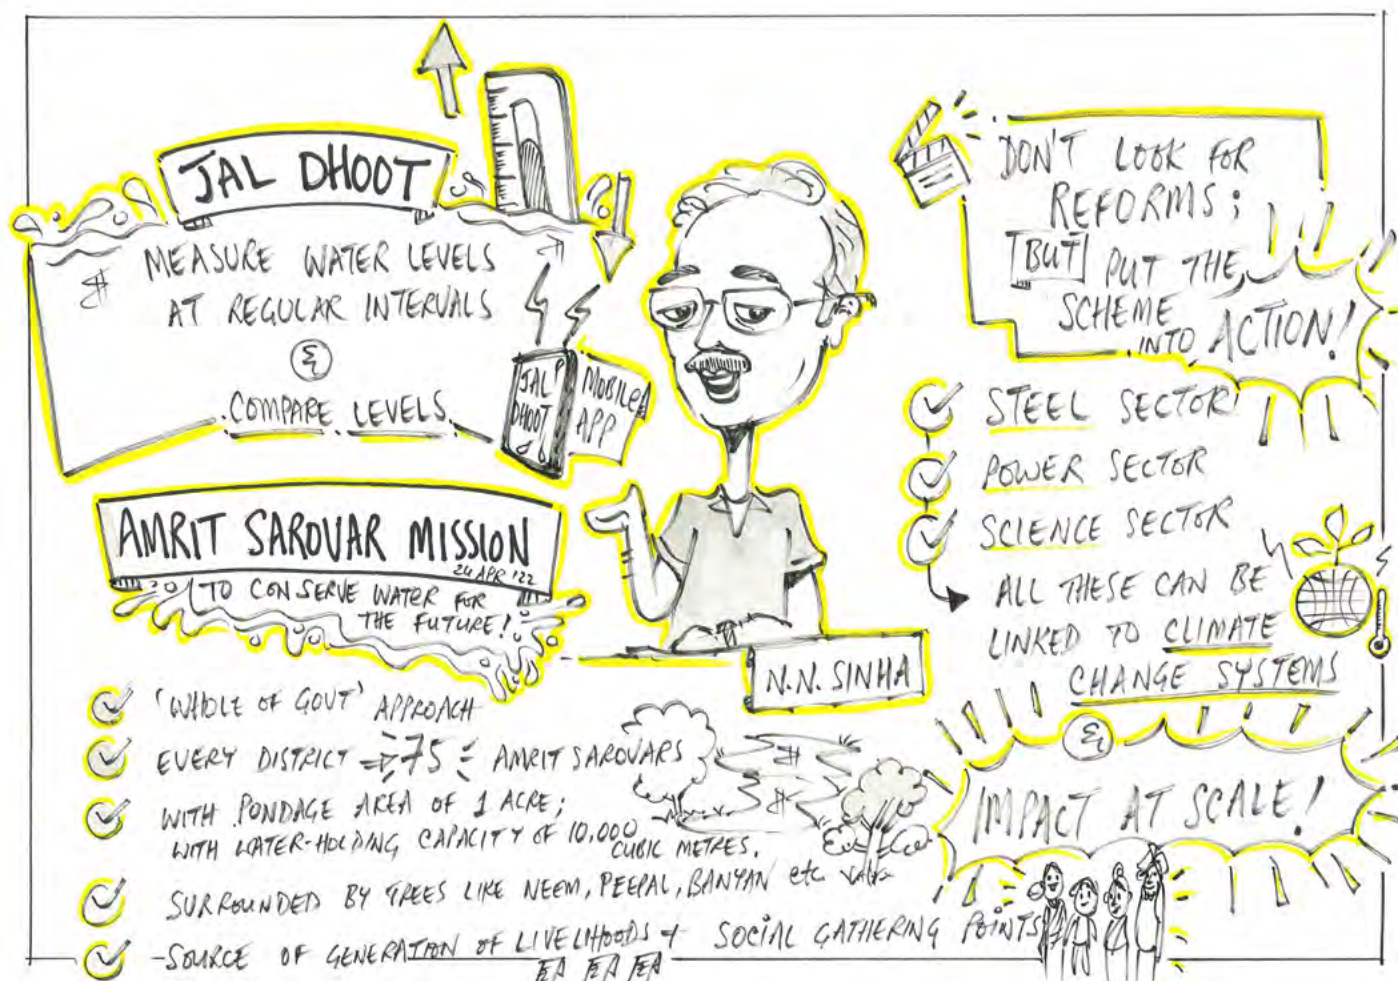 JAL DHOOT
MEASURE WATER LEVELS
AT REGULAR INTERVALS
&
COMPARE LEVELS
JAL
DHOOT
MOBILE
APP
AMRIT SAROVAR MISSION
24 APR '22
TO CONSERVE WATER FOR
THE FUTURE!
'WHOLE OF GOVT' APPROACH
EVERY DISTRICT 75 AMRIT SAROVARS
WITH PONDAGE AREA OF 1 ACRE;
WITH WATER-HOLDING CAPACITY OF 10,000
CUBIC METRES.
SURROUNDED BY TREES LIKE NEEM, PEEPAL, BANYAN etc
SOURCE OF GENERATION OF LIVELIHOODS + SOCIAL GATHERING POINTS
N.N. SINHA
DON'T LOOK FOR
REFORMS;
BUT PUT THE
SCHEME
INTO ACTION!
STEEL SECTOR
POWER SECTOR
SCIENCE SECTOR
ALL THESE CAN BE
LINKED TO CLIMATE
CHANGE SYSTEMS
&
IMPACT AT SCALE!